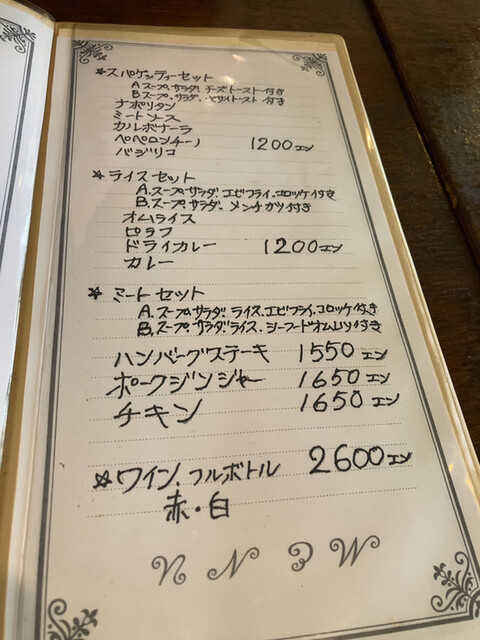 ☆スパゲッティーセット
A スープ、サラダ、チーズトースト付き
B スープ、サラダ、ヤサイトースト付き
ナポリタン
ミートソース
カルボナーラ
ペペロンチーノ 1200エン
バジリコ
☆ライスセット
A.スープ、サラダ、エビフライ、コロッケ付き
B.スープ、サラダ、メンチカツ付き
オムライス
ピラフ
ドライカレー 1200エン
カレー
☆ミートセット
A.スープ、サラダ、ライス、エビフライ、コロッケ付き
B.スープ、サラダ、ライス、シーフードオムレツ付き
ハンバーグステーキ 1550エン
ポークジンジャー 1650エン
チキン 1650エン
☆ワイン、フルボトル 2600エン
赤・白
MENU